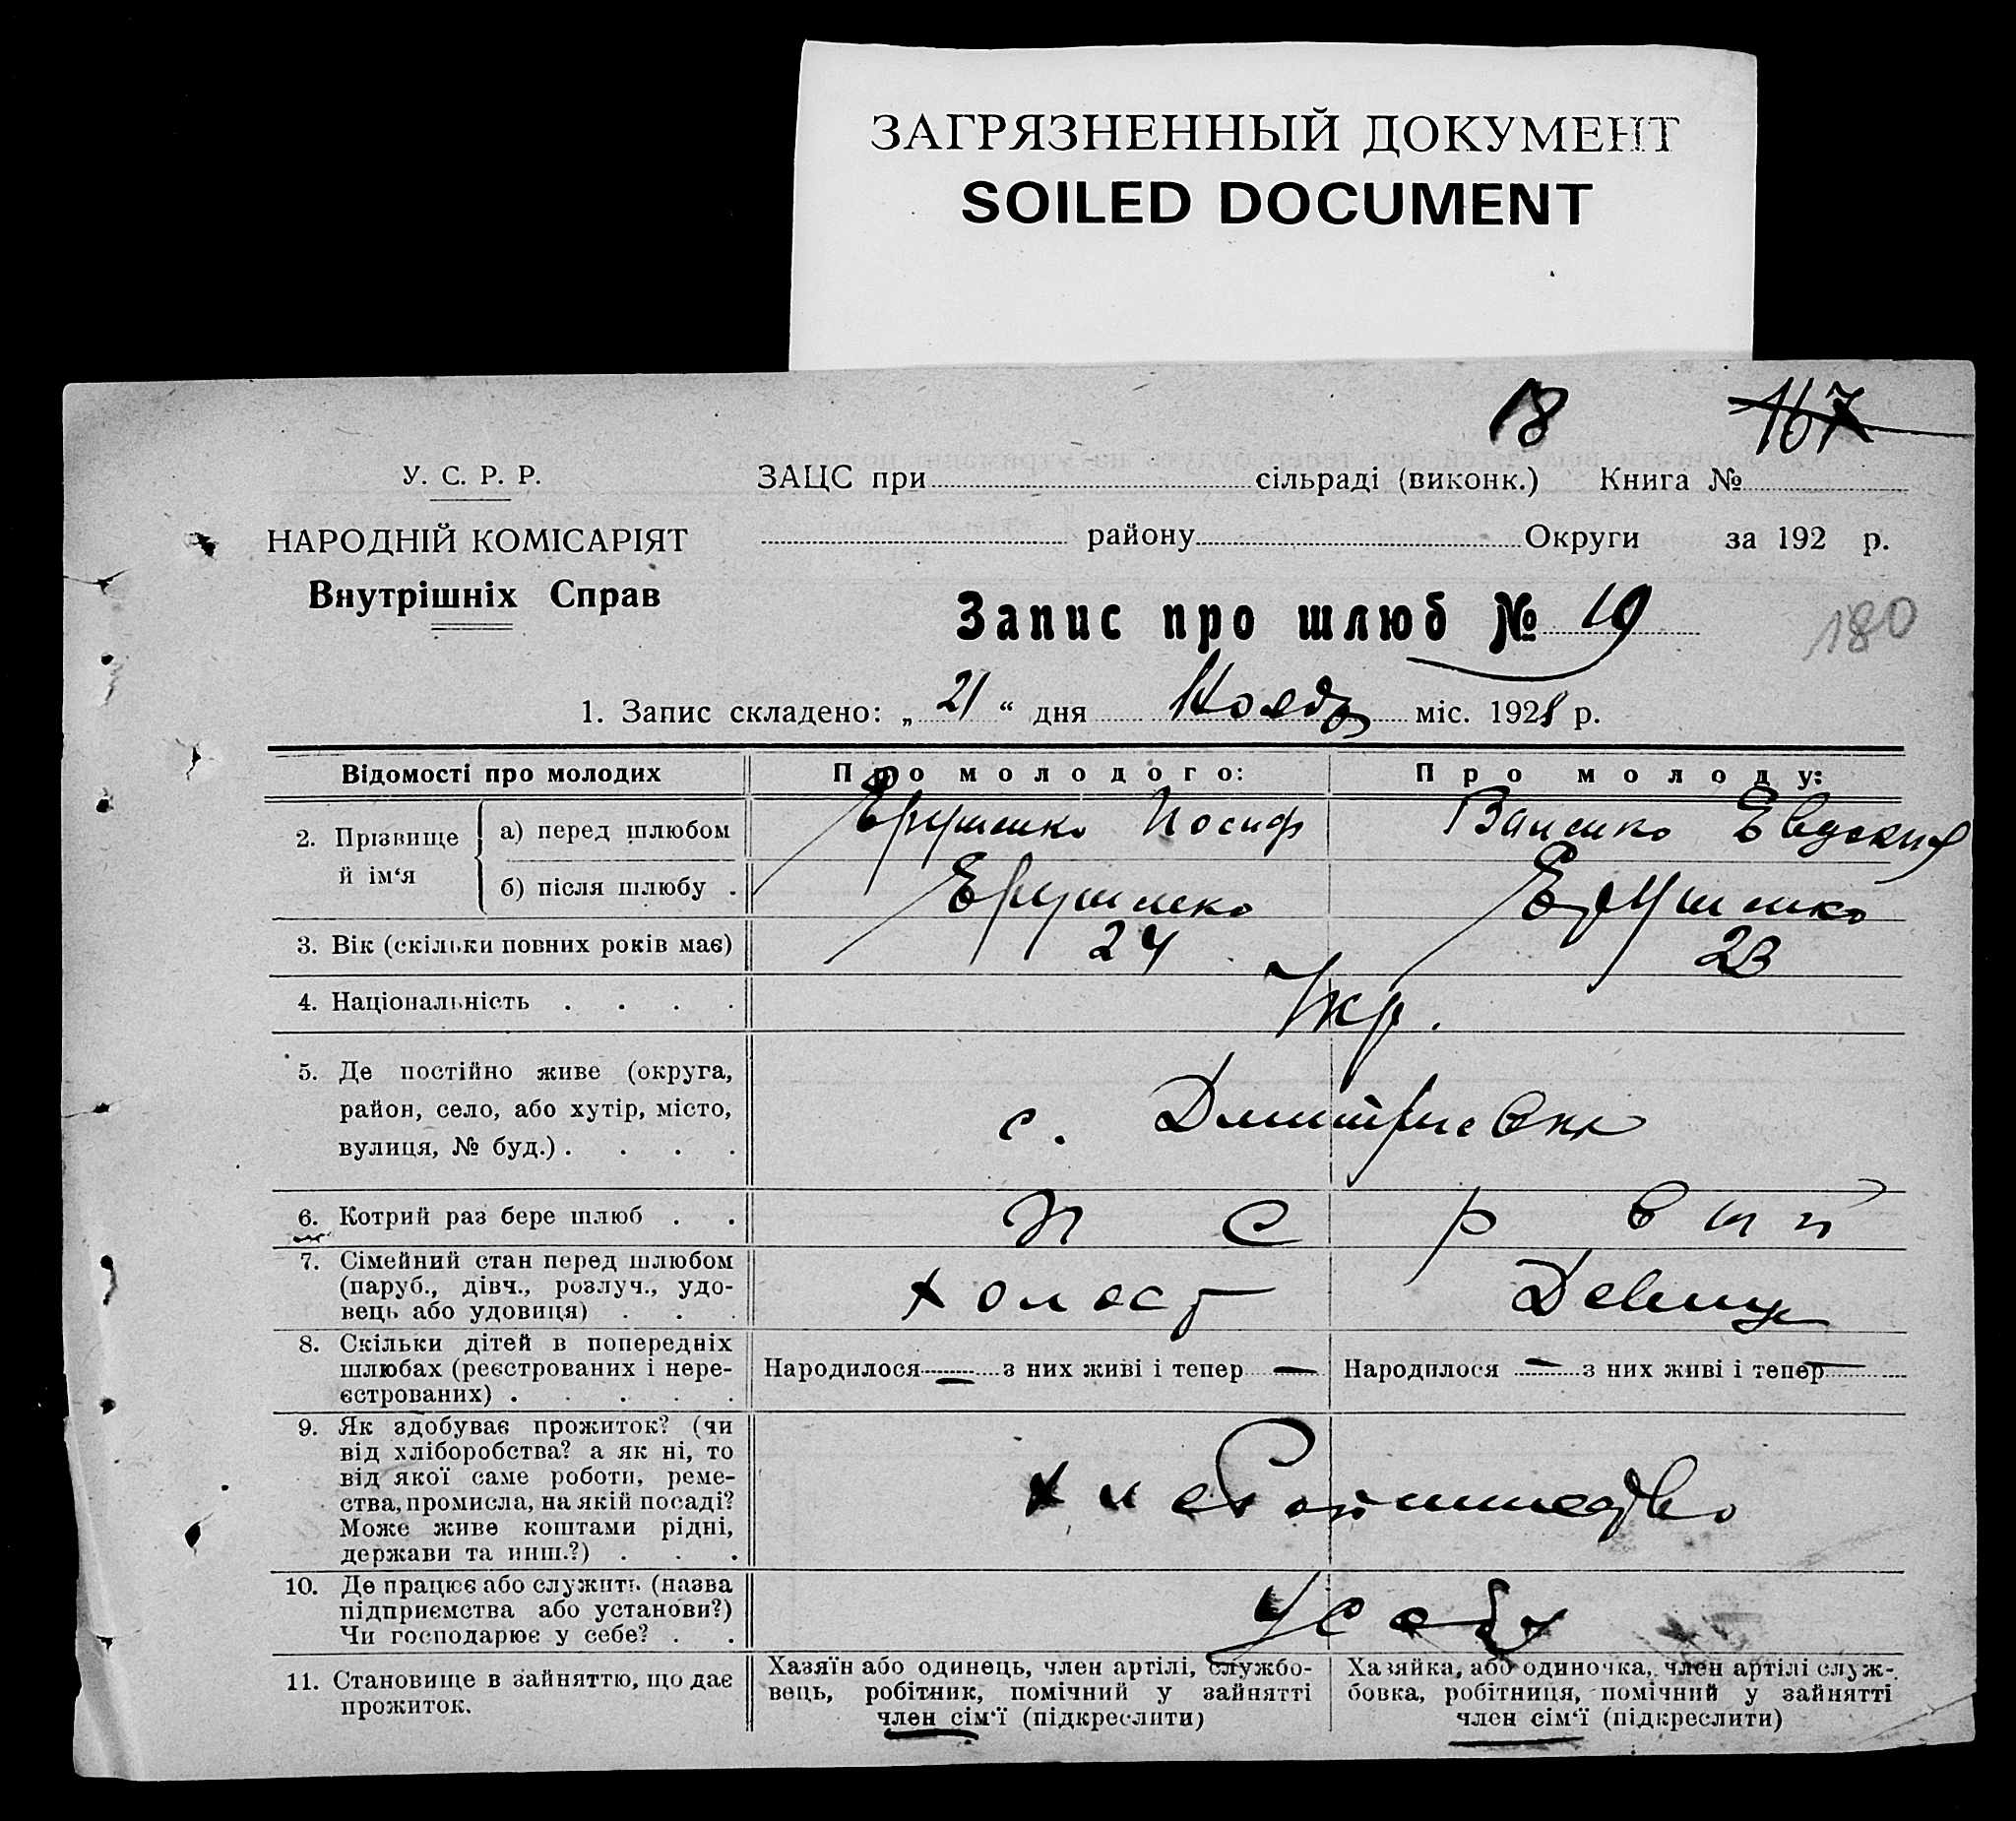 ЗАГРЯЗНЕННЫЙ ДОКУМЕНТ
SOILED DOCUMENT
18 167
У. С. Р. Р.
ЗАЦС при сільраді (виконк.) Книга №
НАРОДНІЙ КОМІСАРІЯТ
району Округи за 192 р.
Внутрішніх Справ
Запис про шлюб № 19
180
1. Запис складено: „ 21 “ дня Ноябр міс. 1928 р.
Відомості про молодих
Про молодого:
Про молоду:
2. Прізвище й ім‘я
а) перед шлюбом
Иосиф
Евдокия
б) після шлюбу .
3. Вік (скільки повних років має)
24
23
4. Національність . . . .
Укр.
5. Де постійно живе (округа,
район, село, або хутір, місто,
вулиця, № буд.) . . . .
с. Дмитриевка
6. Котрий раз бере шлюб . .
первый
7. Сімейний стан перед шлюбом
(паруб., дівч., розлуч., удо-
вець або удовиця) . . .
холост
Девица
8. Скільки дітей в попередніх
шлюбах (реєстрованих і нере-
єстрованих) . . . . .
Народилося — з них живі і тепер —
Народилося — з них живі і тепер —
9. Як здобуває прожиток? (чи
від хліборобства? а як ні, то
від якої саме роботи, реме-
ства, промисла, на якій посаді?
Може живе коштами рідні,
держави та инш.?) . . .
10. Де працює або служить (назва
підприємства або установи?)
Чи господарює у себе? . .
У себя
11. Становище в зайняттю, що дає
прожиток.
Хазяїн або одинець, член артілі, службо-
вець, робітник, помічний у зайнятті
член сім‘ї (підкреслити)
Хазяйка, або одиночка, член артілі служ-
бовка, робітниця, помічний у зайнятті
член сім‘ї (підкреслити)